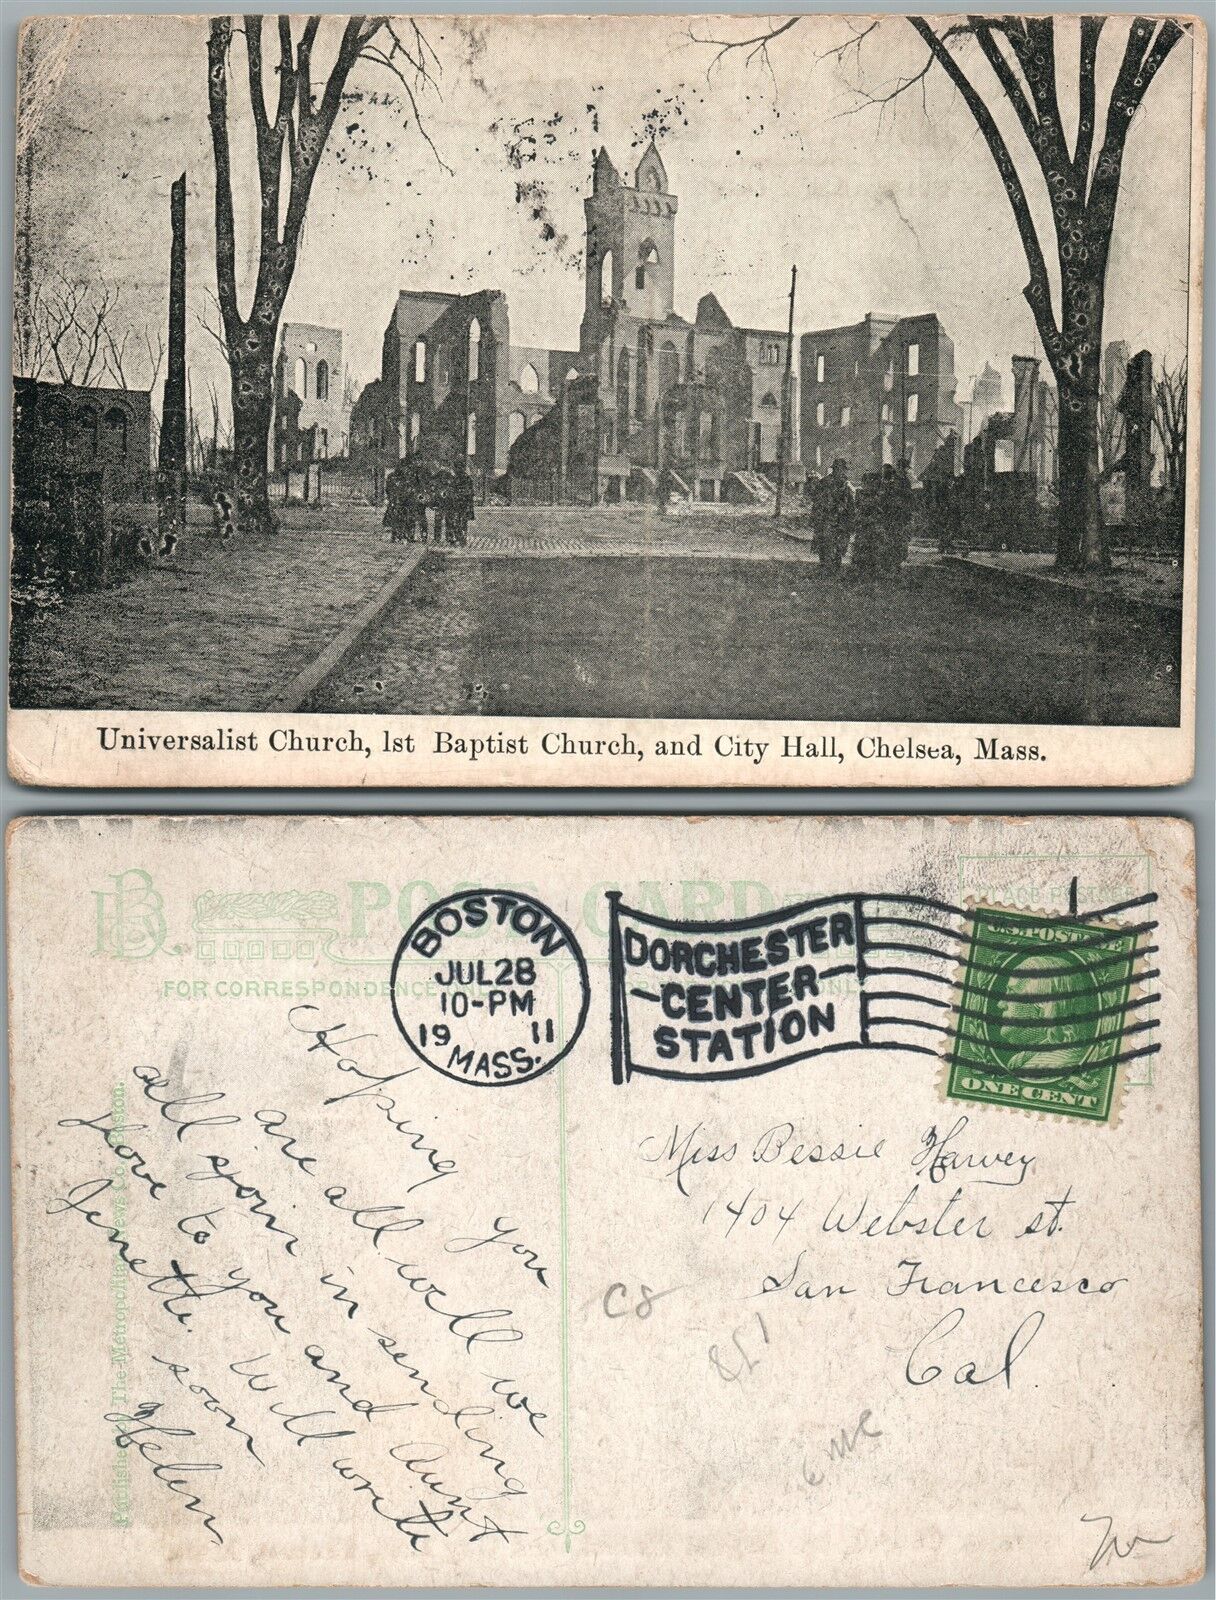 Universalist Church, 1st Baptist Church, and City Hall, Chelsea, Mass.
POST CARD
PLACE POSTAGE
FOR CORRESPONDENCE ONLY
ONLY
BOSTON
JUL 28
10-PM
19 11
MASS.
DORCHESTER
-CENTER-
STATION
U.S. POSTAGE
ONE CENT
Hoping you
are all well we
all join in sending
love to you and Aunt
Jenette. Will write
soon
Helen
Published by The Metropolitan News Co. Boston.
Miss Bessie Harvey
1404 Webster st.
San Francesco
Cal
C8